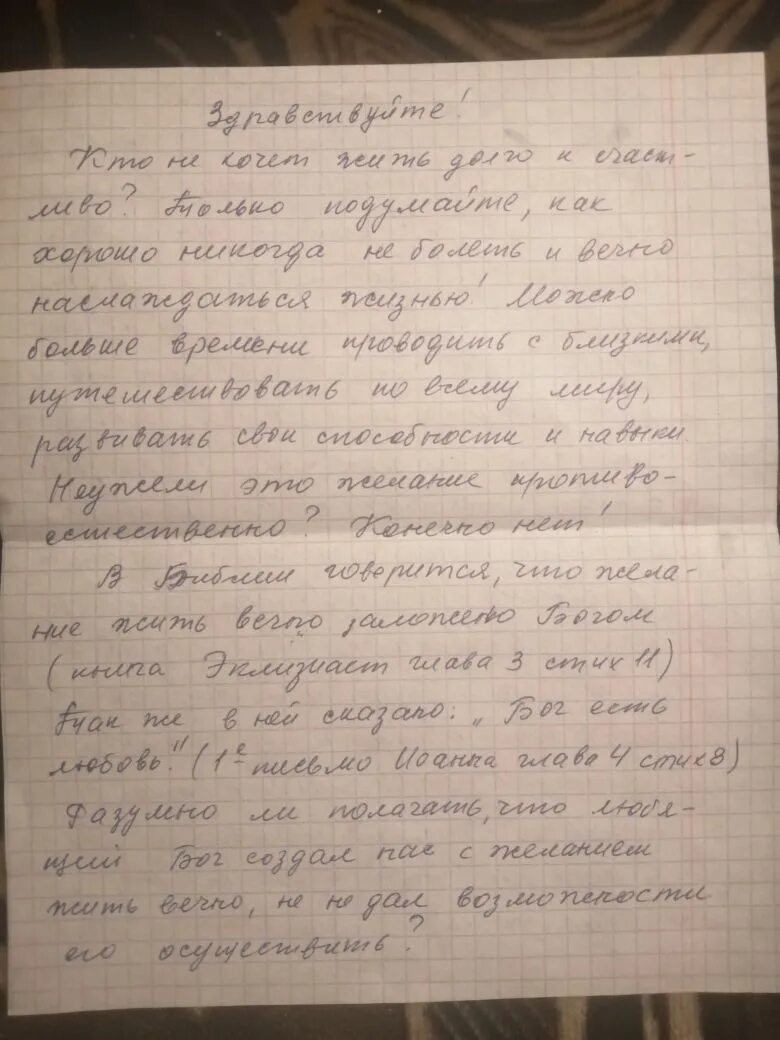 Здравствуйте!
Кто не хочет жить долго и счаст-
ливо? Только подумайте, как
хорошо никогда не болеть и вечно
наслаждаться жизнью! Можно
больше времени проводить с близкими,
путешествовать по всему миру,
развивать свои способности и навыки.
Неужели это желание противо-
естественно? Конечно нет!
В Библии говорится, что жела-
ние жить вечно заложено Богом
(книга Эклизиаст глава 3 стих 11)
Так же в ней сказано: „Бог есть
любовь." (1е письмо Иоанна глава 4 стих 8)
Разумно ли полагать, что любя-
щий Бог создал нас с желанием
жить вечно, не не дал возможности
его осуществить?